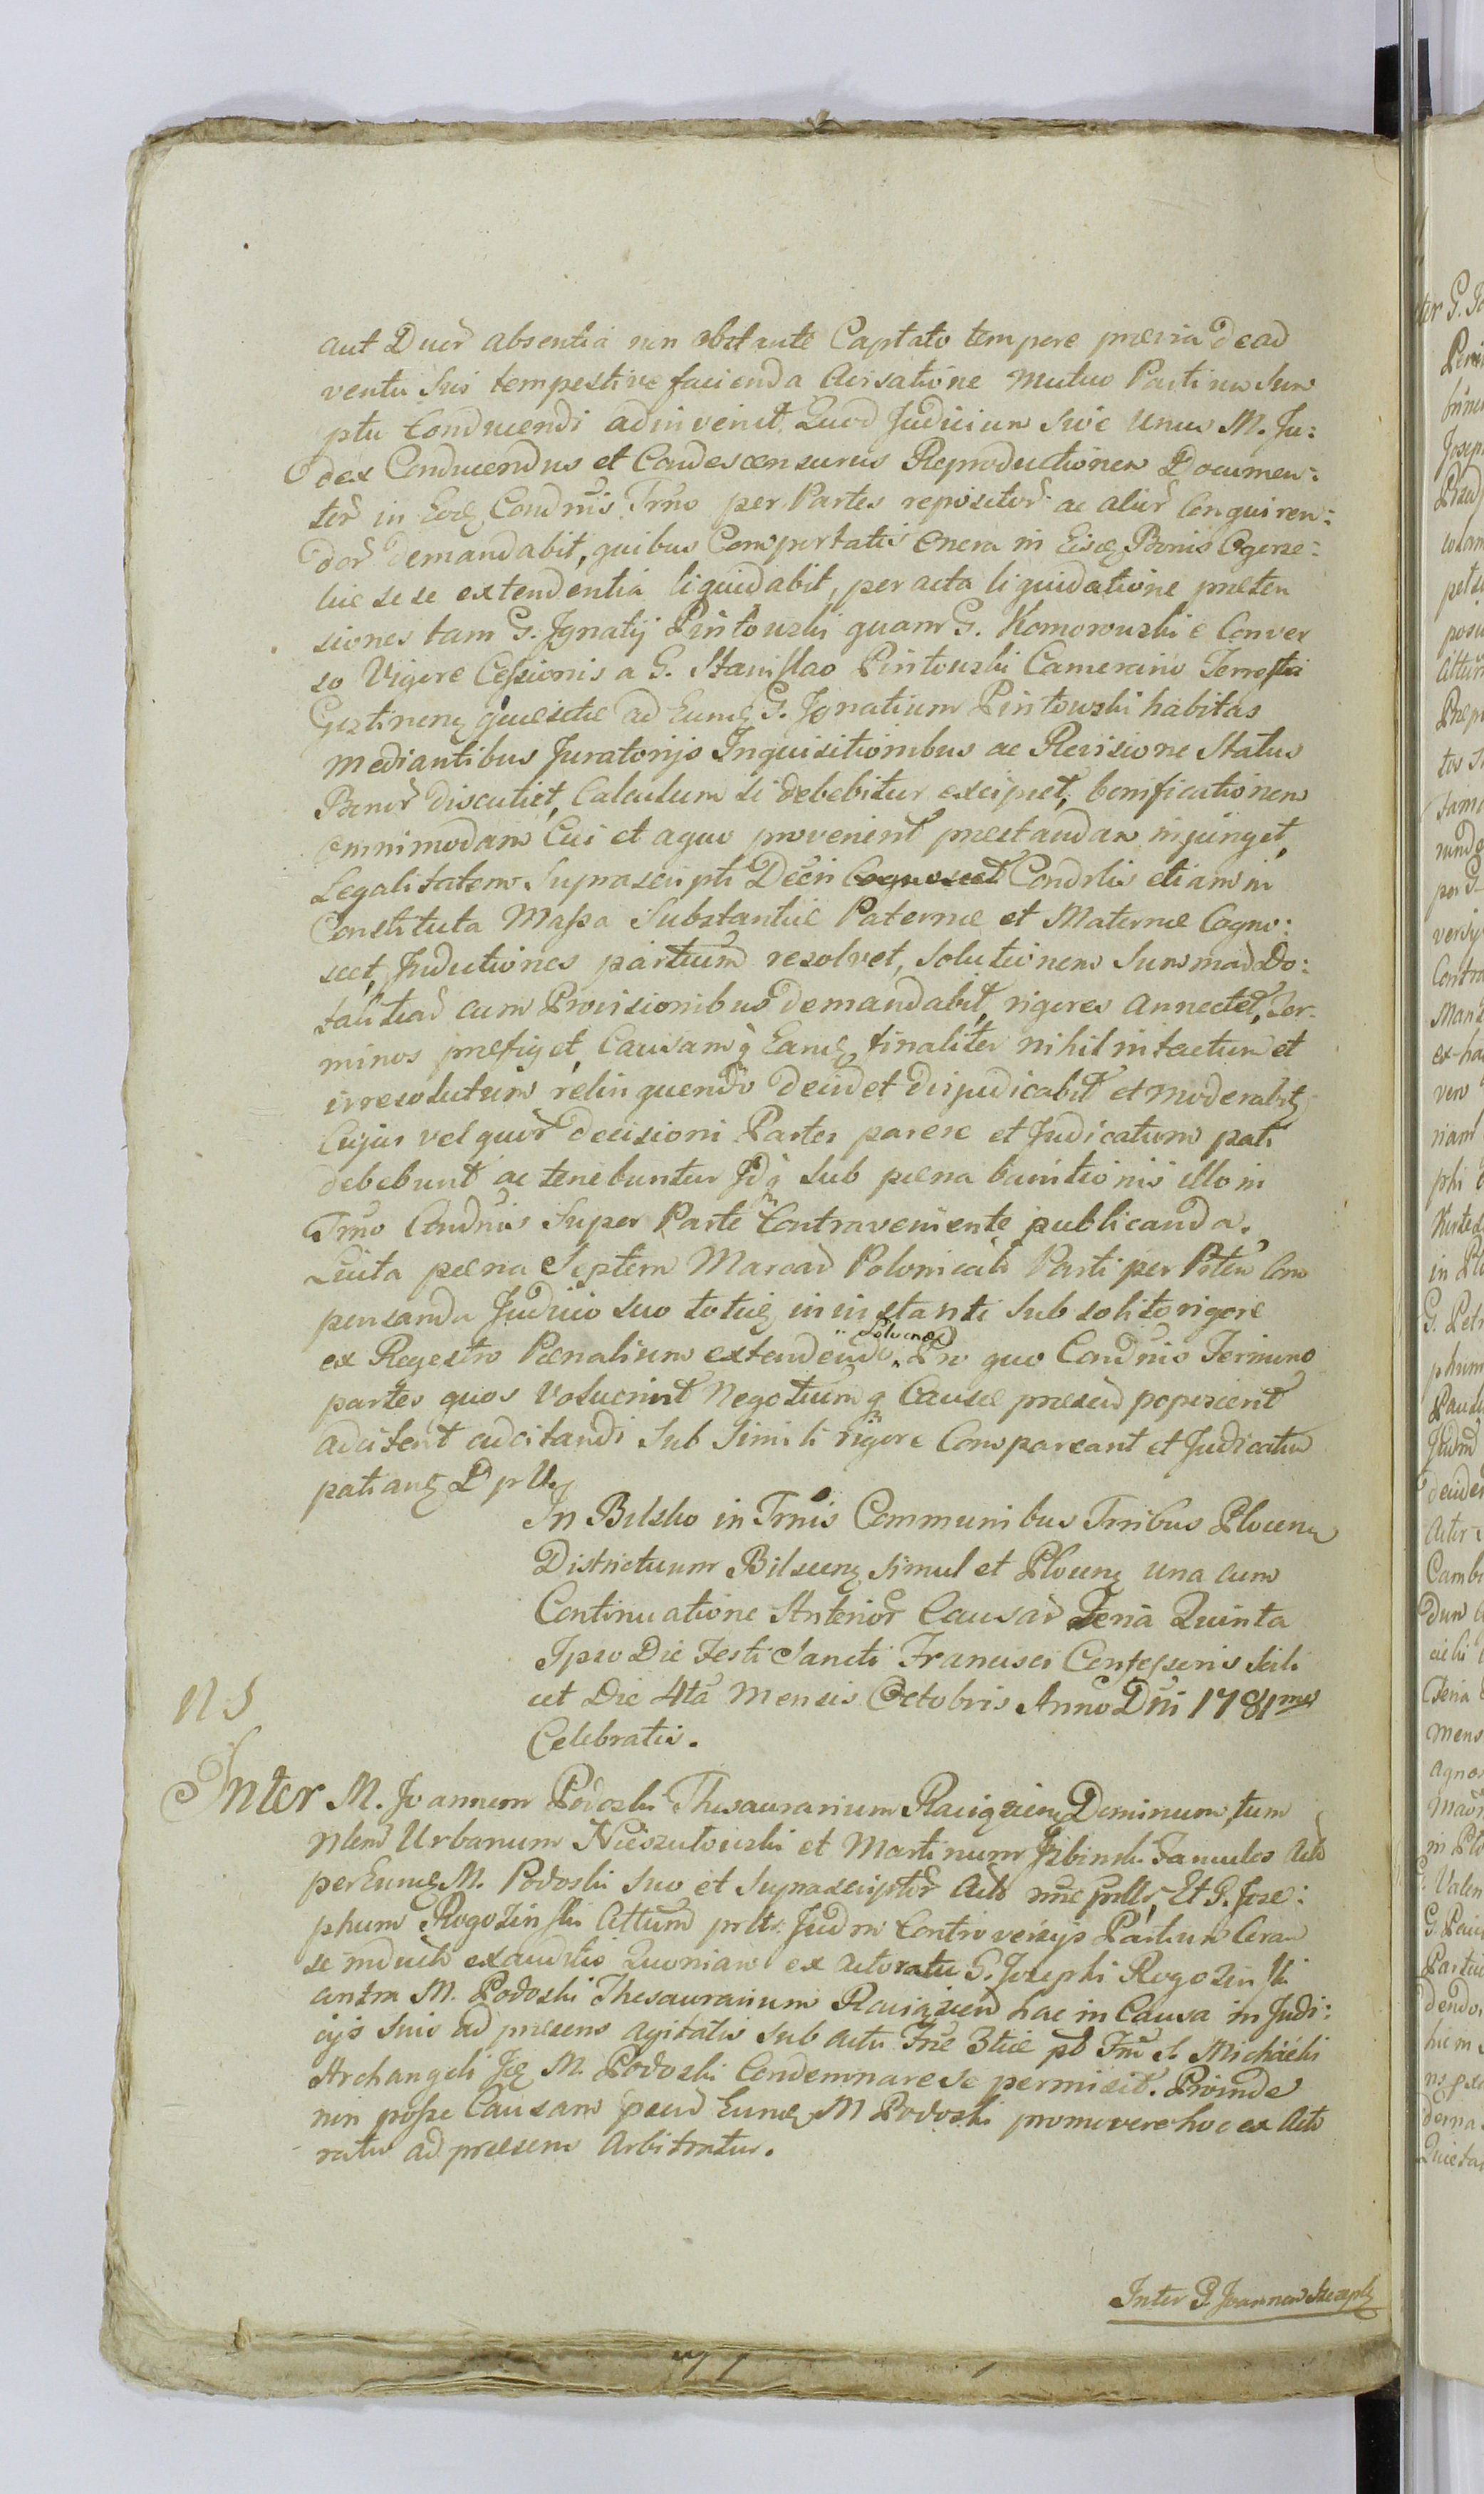 aut Duor absentia non obstante Captato tempore prævia de ad
ventu Sui tempestive facienda Avisatione mutuo Partium Sum
ptu Conducendi adinvenit. Quod Judicium Sive Unus M. Ju:
dex Conducendus et Condescensurus Reproductionem Documen:
tor in Eodq Condnis Trno per Partes repositor ac alior Conquiren:
dor demandabit, quibus Comportatis Onera in Eisq Bonis
liæ se se extendentia liquidabit, peracta liquidatione præten
siones tam G. Ignatij Pintowski quam G. Komorowski e Conver
so Vigore Cessionis a G. Stanislao Pintowski Camerario Terrestri
Gostinenq quæsitæ ad Eumq G. Ignatium Pintowski habitas
mediantibus Juratorijs Inquisitionibus ac Revisione Status
Bonor discutiet, Calculum si debebitur excipiet, bonificationem
omnimodam Cui et a quo provenient præstandam injunget,
Legalitatem Suprascripti Decri Cognoscet Condrlis etiam in
Constituta Massa Substantiæ Paternæ et Maternæ Cogno:
scet, Inductiones partium resolvet, Solutionem Summar Do:
talitiar cum Provisionibus demandabit, rigores annectet, Ter-
minos præfiget, Causamq Eamq finaliter nihil intactum et
irresolutum relinquendo decidet dijudicabit et moderabitq
Cujus vel quor decisioni Partes parere et Judicatum pati
debebunt ac tenebuntur Idq sub pæna bannitionis illo in
Trno Condnis Super Parte Contraveniente publicanda.
Luita pæna Septem Marcar Polonicali Parti per Partem Com
pensanda Judicio suo totiesq in instanti sub solito rigore
ex Regestro Pænalium extendendo Solvenda. Pro quo Condnis Termino
partes quos Voluerint Negotiumq Causæ præsen poposcerit
adcitent adcitandi sub simili rigore Compareant et Judicatum
patianq D p V.
In Bilsko in Trnis Communibus Trribus Plocenq
Districtuum Bilscenq simul et Plocenq una cum
Continuatione Anterior Causar Feria Quinta
Ipso Die Festi Sancti Francisci Confessoris Scili
cet Die 4ta Mensis Octobris Anno Dni 1781mo
Celebratis.
N 5
Inter M. Joannem Podoski Thesaurarium Raciązienq Dominum, tum
Nlem Urbanum Nieszułowski et Martinum Famulos Acto
per Eumq M. Podoski Suo et Suprascriptor Acto nne Et G. Jose:
phum Rogozinski Cittum Judm Controversijs Partium Coram
se induct exauditis Quoniam ex Actoratu G. Josephi Rogozinski
contra M. Podoski Thesaurarium Raciązien hac in Causa in Judi:
cijs Suis ad præsens agitatis sub actu Friæ 3tiæ pt Fm S. Michaelis
Archangeli Iq M. Podoski Condemnare se permisit. Proinde
non posse Causam præsen Eumq M Podoski promovere hoc ex Acto
ratu ad præsens Arbitratur.
Inter G. Joannem